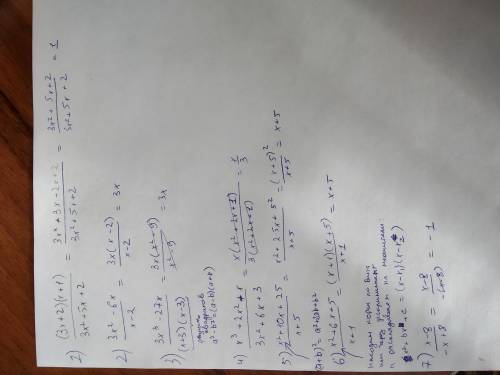 1) (3x+2)(x+1) / 3x²+5x+2 = 3x²+3x+2x+2 / 3x²+5x+2 = 3x²+5x+2 / 3x²+5x+2 = 1
2) 3x²-6x / x-2 = 3x(x-2) / x-2 = 3x
3) 3x³-27x / (x+3)(x-3) = 3x(x²-9) / x²-9 = 3x
разность квадратов
a²-b²=(a-b)(a+b)
4) x³+2x²+x / 3x²+6x+3 = x(x²+2x+1) / 3(x²+2x+1) = x / 3
5) x²+10x+25 / x+5 = x²+2·5x+5² / x+5 = (x+5)² / x+5 = x+5
(a+b)²=a²+2ab+b²
6) x²+6x+5 / x+1 = (x+1)(x+5) / x+1 = x+5
находим корни по Виета
или через дискриминант
и раскладываем на множители:
x²+bx+c=(x-x₁)(x-x₂)
7) x-8 / -x+8 = x-8 / -(x-8) = -1